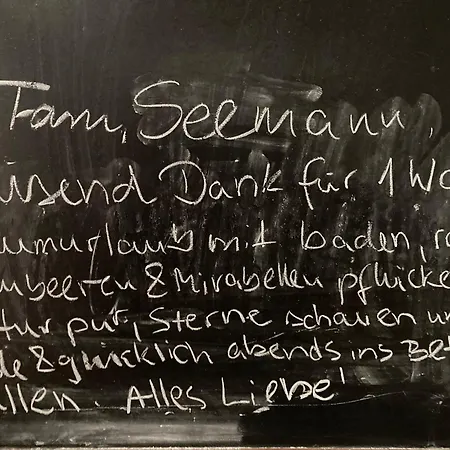 Fam. Seemann,
usend Dank für 1 Wo
umurlaub mit baden, r
mbeeren & Mirabellen pflücke
tur pur, Sterne schauen un
de & glücklich abends ins Bet
llen. Alles Liebe!